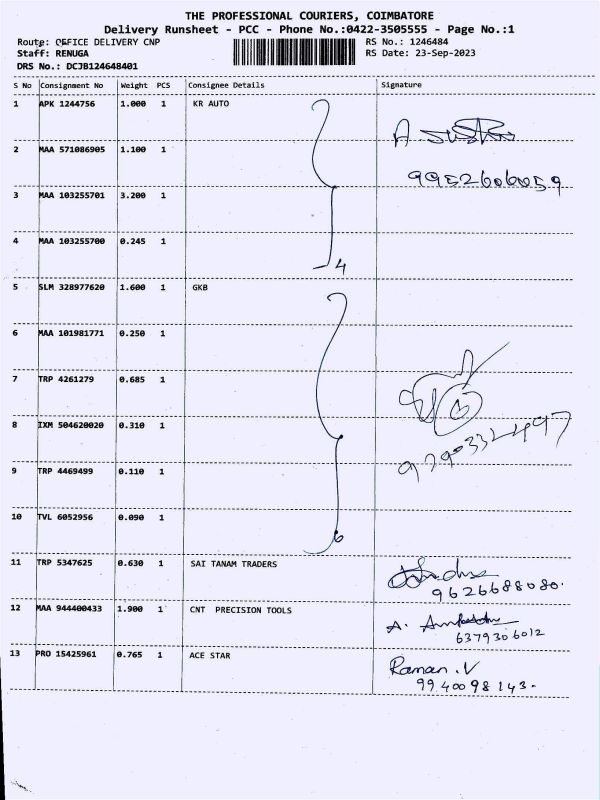 THE PROFESSIONAL COURIERS, COIMBATORE
Delivery Runsheet - PCC - Phone No.:0422-3505555 - Page No.:1
Route: OFFICE DELIVERY CNP RS No.: 1246484
Staff: RENUGA RS Date: 23-Sep-2023
DRS No.: DCJB124648401
S No Consignment No Weight PCS Consignee Details Signature
1 APK 1244756 1.000 1 KR AUTO
2 MAA 571086905 1.100 1
9952606059
3 MAA 103255701 3.200 1
4 MAA 103255700 0.245 1
4
5 SLM 328977620 1.600 1 GKB
6 MAA 101981771 0.250 1
7 TRP 4261279 0.685 1
8 IXM 504620020 0.310 1
9 TRP 4469499 0.110 1
10 TVL 6052956 0.090 1
6
11 TRP 5347625 0.630 1 SAI TANAM TRADERS
9626688080.
12 MAA 944400433 1.900 1 CNT PRECISION TOOLS
A.
6379306012
13 PRO 15425961 0.765 1 ACE STAR
Raman.V
9940098143-